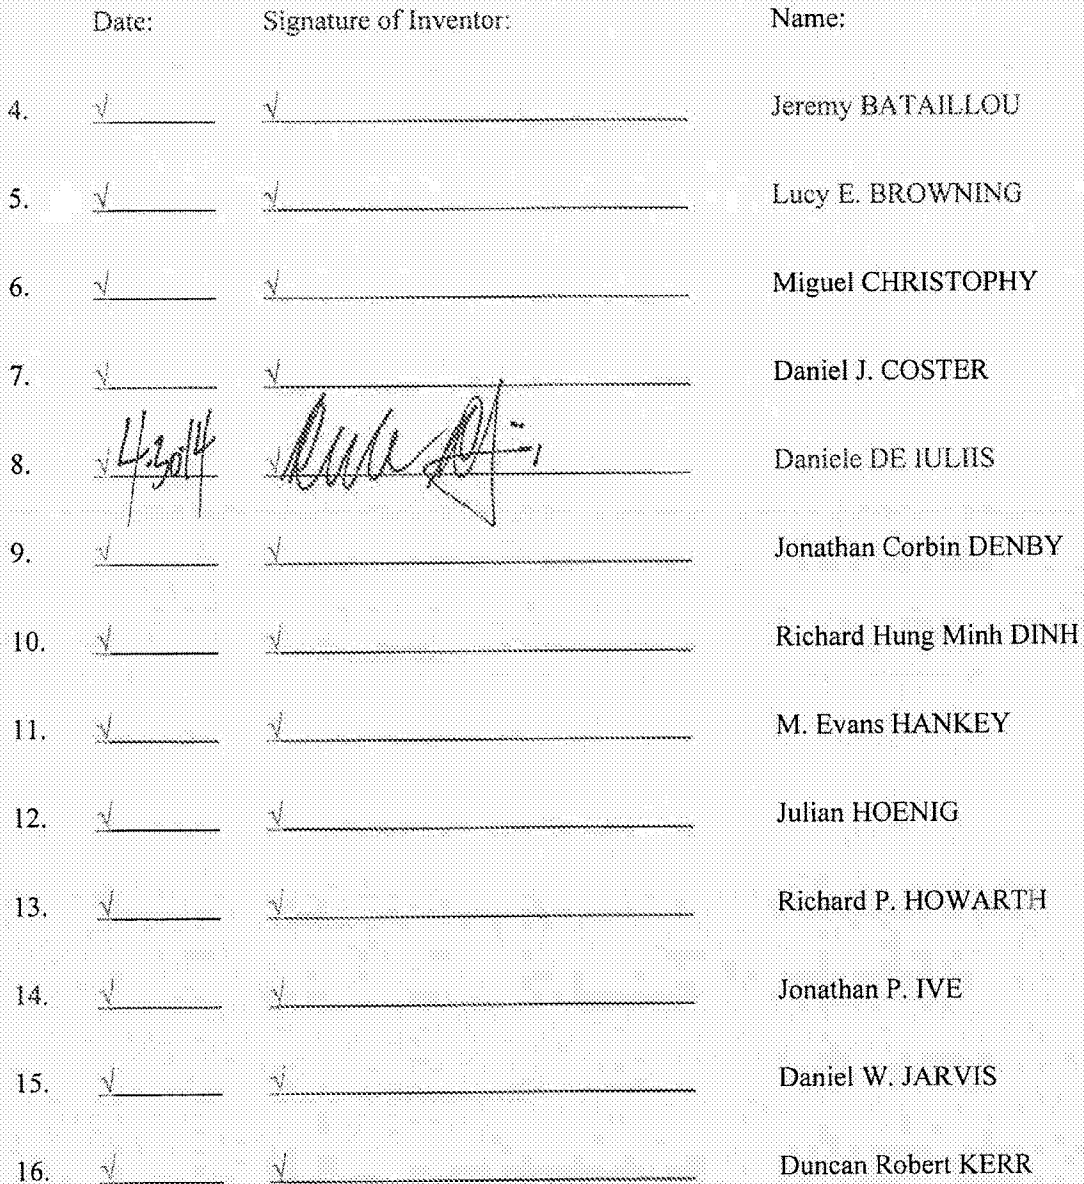 Date: Signature of Inventor: Name:
4. √ √ Jeremy BATAILLOU
5. √ √ Lucy E. BROWNING
6. √ √ Miguel CHRISTOPHY
7. √ √ Daniel J. COSTER
8. √ √ Daniele DE IULIIS
9. √ √ Jonathan Corbin DENBY
10. √ √ Richard Hung Minh DINH
11. √ √ M. Evans HANKEY
12. √ √ Julian HOENIG
13. √ √ Richard P. HOWARTH
14. √ √ Jonathan P. IVE
15. √ √ Daniel W. JARVIS
16. √ √ Duncan Robert KERR